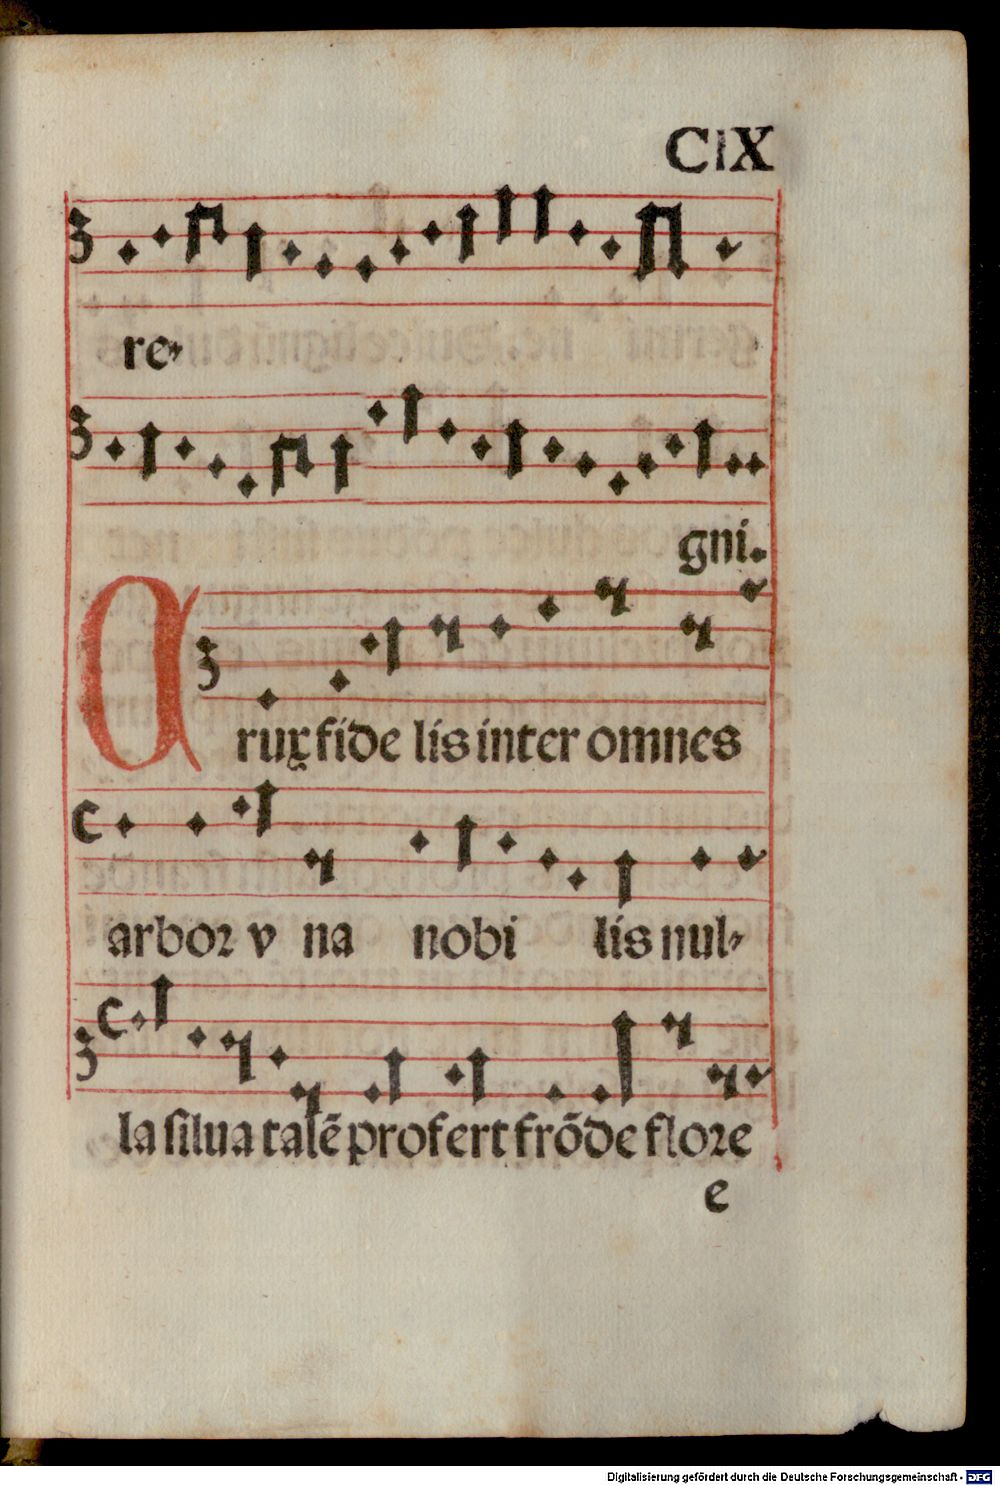 CIX
re-
gni.
Crux fide lis inter omnes
arbor v na nobi lis nul-
la silua talē profert frōde flore
e
Digitalisierung gefördert durch die Deutsche Forschungsgemeinschaft - DFG